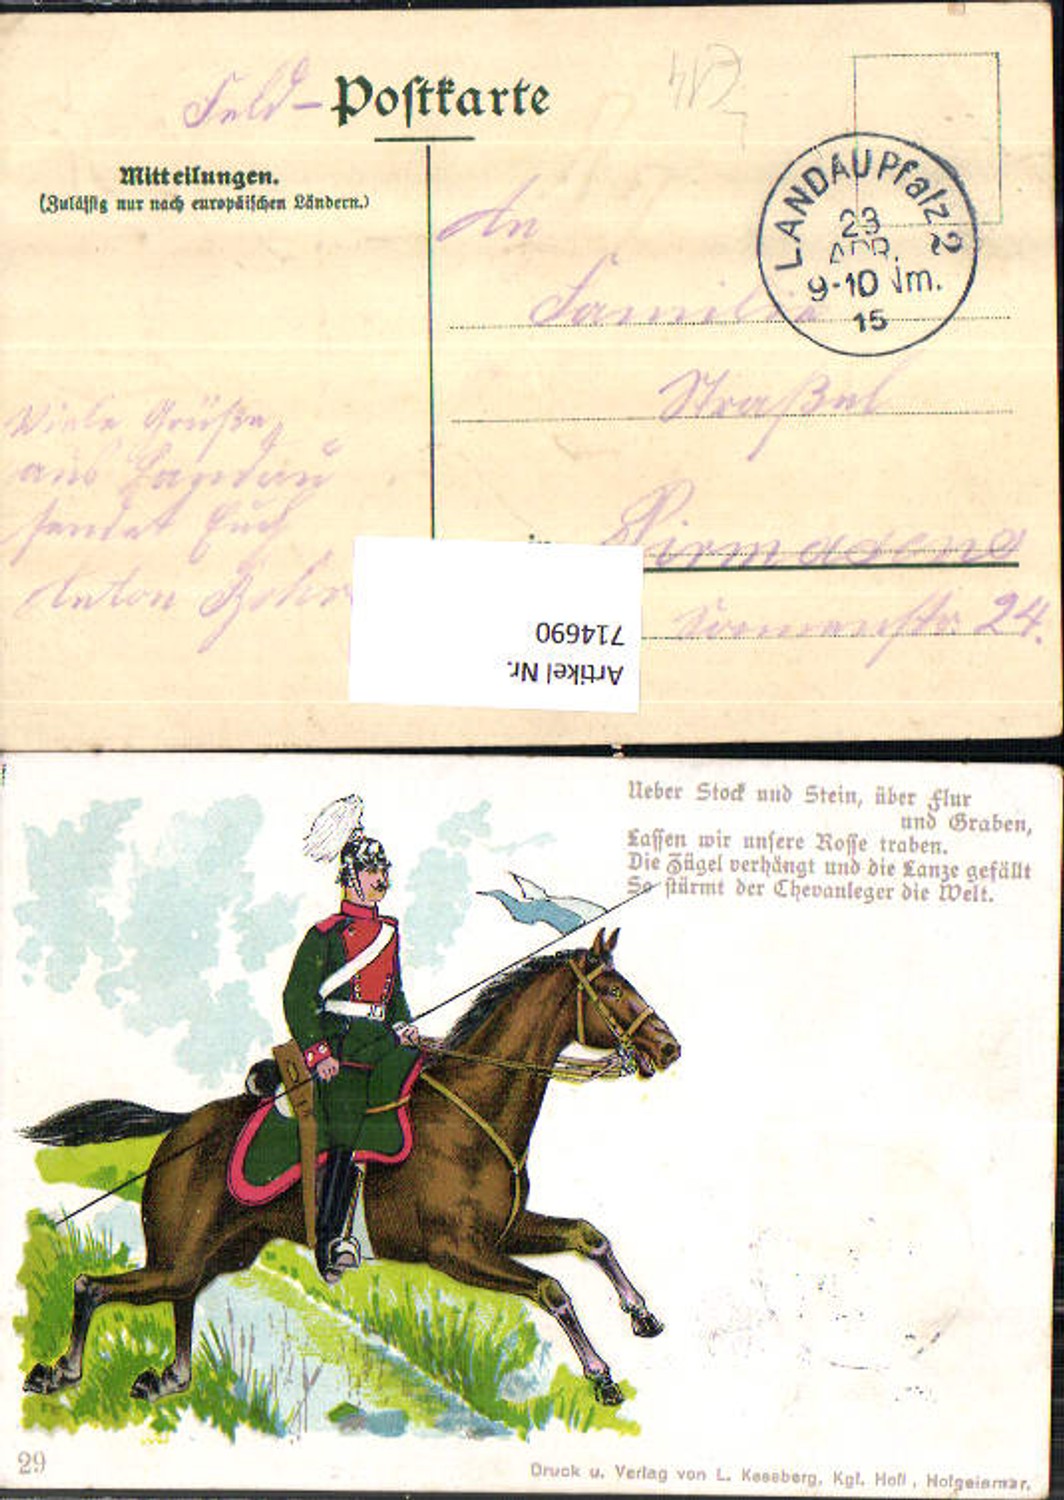 Feld-Postkarte
Mitteilungen.
(Zulässig nur nach europäischen Ländern.)
LANDAU Pfalz 2
23
APR.
9-10 Vm.
15
An
Familie
Straßel
in Pirmasens
24.
Viele Grüße
aus Landau
sendet Euch
Anton
Artikel Nr.
714690
Ueber Stock und Stein, über Flur
und Graben,
Lassen wir unsere Rosse traben.
Die Zügel verhängt und die Lanze gefällt
So stürmt der Chevauleger die Welt.
29
Druck u. Verlag von L. Keseberg, Kgl. Hofl., Hofgeismar.